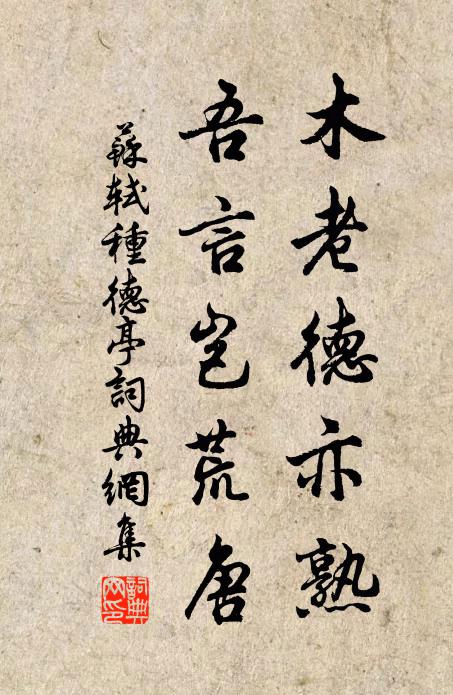 木老德亦熟
吾言岂荒唐
蘇軾種德亭詞典網集
詞典网印